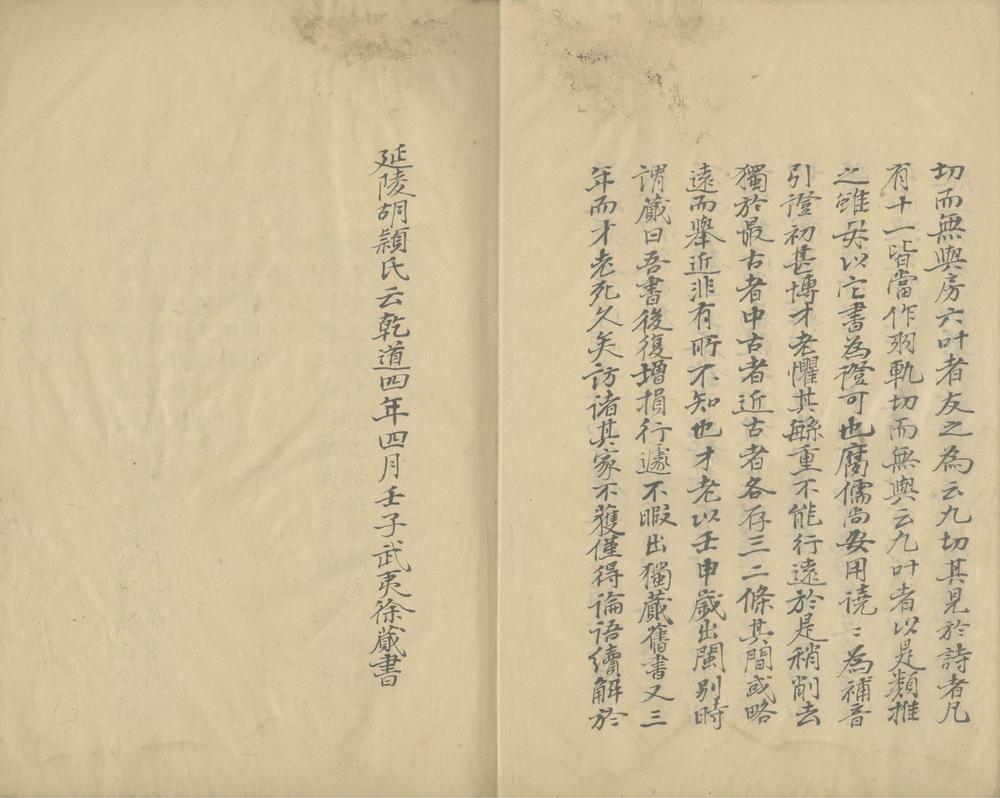 切而無與房六叶者友之為云九切其見於詩者凡
有十一皆當作羽軌切而無與云九叶者以是類推
之雖毋以它書為證可也腐儒尚安用譊〻為補音
引證初甚博才老懼其緐重不能行遠於是稍削去
獨於最古者中古者近古者各存三二條其間或略
遠而舉近非有所不知也才老以壬申歲出閩別時
謂蕆曰吾書後復增損行遽不暇出獨蕆舊書又三
年而才老死久矣訪諸其家不獲僅得論語續解於
延陵胡穎氏云乾道四年四月壬子武夷徐蕆書